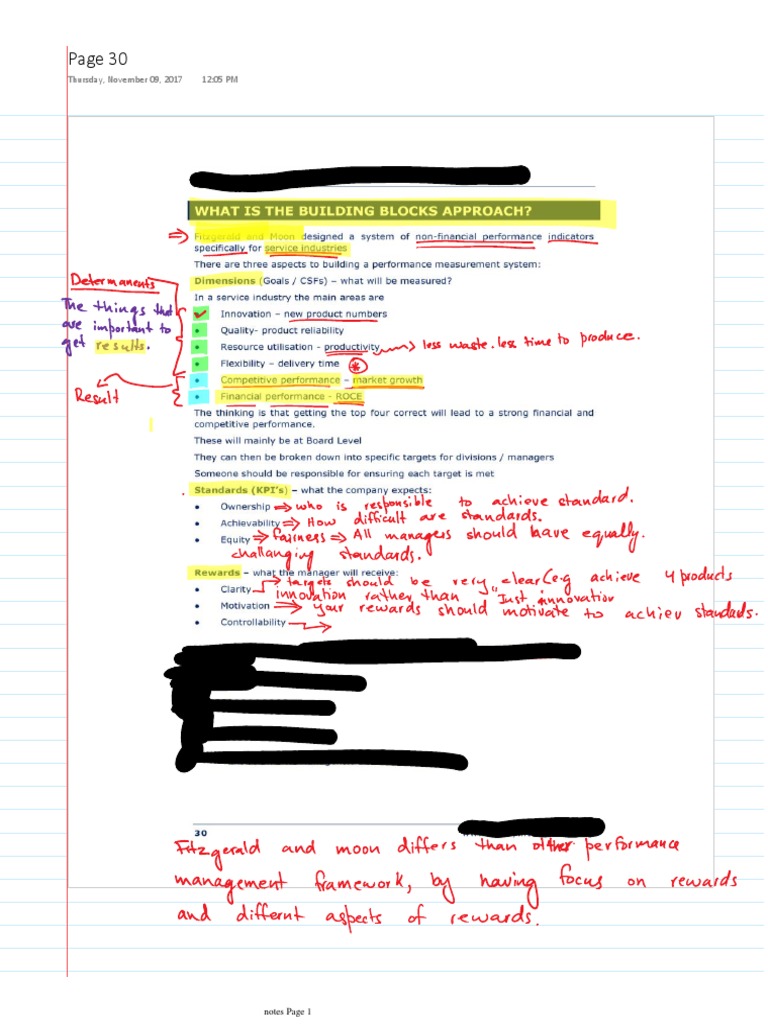 Page 30
Thursday, November 09, 2017 12:05 PM
WHAT IS THE BUILDING BLOCKS APPROACH?
Fitzgerald and Moon designed a system of non-financial performance indicators
specifically for service industries
There are three aspects to building a performance measurement system:
Determanents
Dimensions (Goals / CSFs) – what will be measured?
In a service industry the main areas are
The things that
are important to
get results.
Innovation – new product numbers
Quality- product reliability
Resource utilisation - productivity → less waste. less time to produce.
Flexibility – delivery time *
Competitive performance – market growth
Result
Financial performance - ROCE
The thinking is that getting the top four correct will lead to a strong financial and
competitive performance.
These will mainly be at Board Level
They can then be broken down into specific targets for divisions / managers
Someone should be responsible for ensuring each target is met
Standards (KPI's) – what the company expects:
• Ownership ⇒ who is responsible to achieve standard.
• Achievability ⇒ How difficult are standards.
• Equity ⇒ fairness ⇒ All managers should have equally.
challanging standards.
Rewards – what the manager will receive:
• Clarity → targets should be very clear (e.g achieve 4 products
innovation rather than "Just innovation
• Motivation ⇒ your rewards should motivate to achiev standards.
• Controllability →
30
Fitzgerald and moon differs than other performance
management framework, by having focus on rewards
and differnt aspects of rewards.
notes Page 1